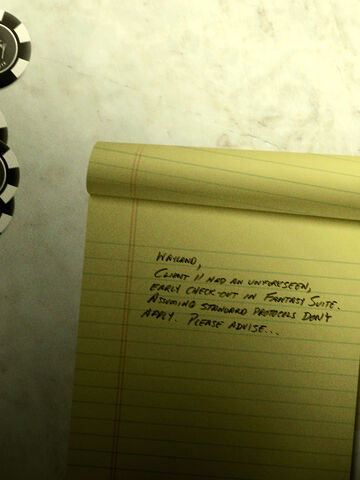 WAYLAND,
CLIENT 11 HAD AN UNFORESEEN,
EARLY CHECK-OUT IN FANTASY SUITE.
ASSUMING STANDARD PROTOCOLS DON'T
APPLY. PLEASE ADVISE...